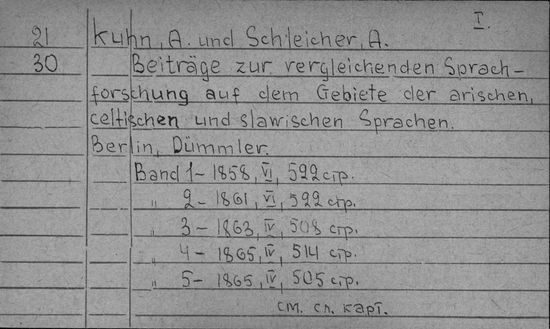 I.
21 Kuhn, A. und Schleicher, A.
30 Beiträge zur vergleichenden Sprach-
forschung auf dem Gebiete der arischen,
celtischen und slawischen Sprachen.
Berlin, Dümmler.
Band 1 - 1858, VI, 522 стр.
„ 2 - 1861, VI, 522 стр.
„ 3 - 1863, IV, 508 стр.
„ 4 - 1865, IV, 514 стр.
„ 5 - 1865, IV, 505 стр.
см. сл. карт.